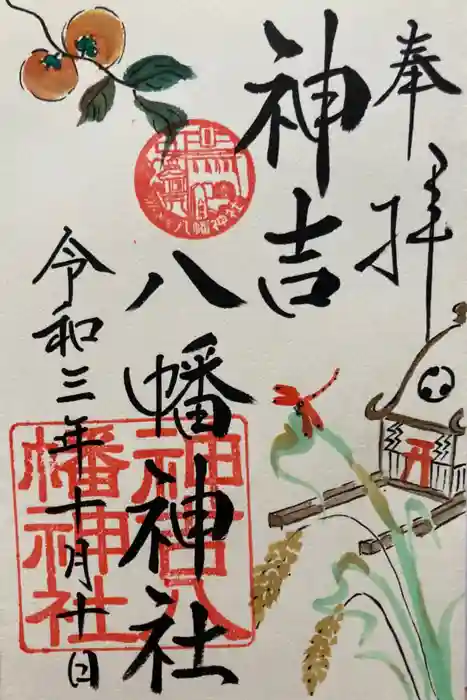 奉拝
神吉
八幡神社
令和三年十月十日
神吉八
幡神社
八幡神社